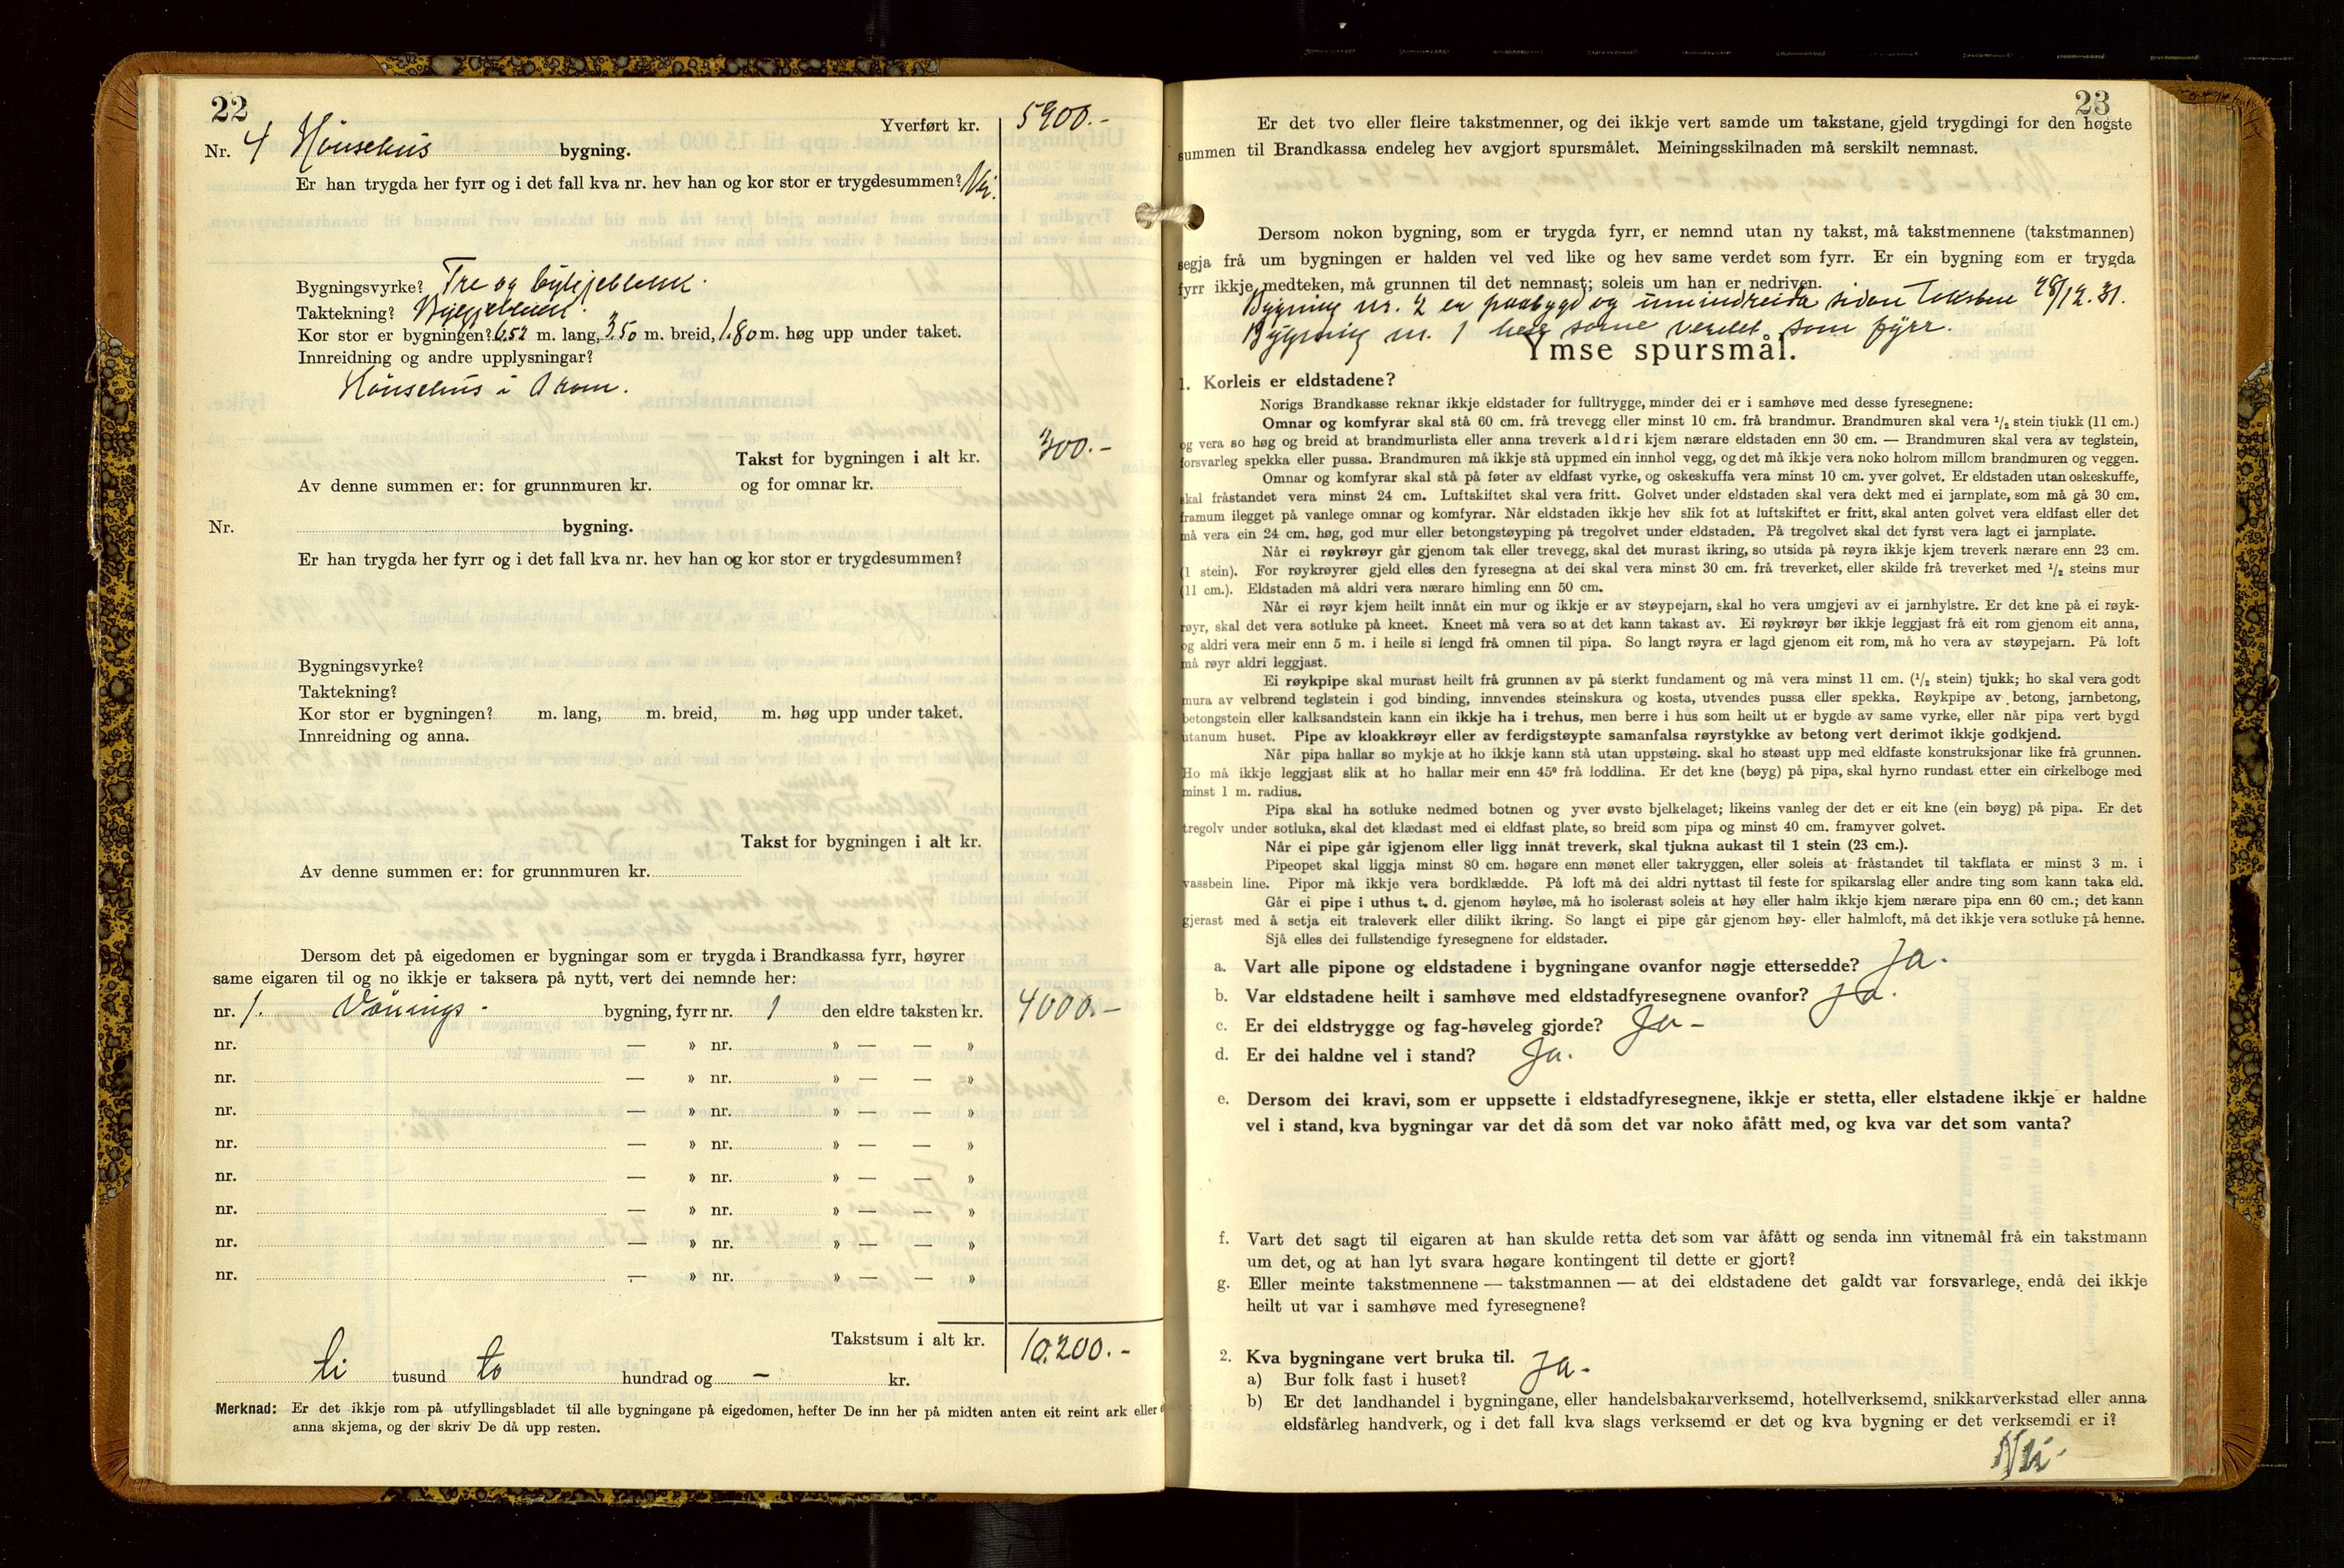 22
Yverført kr. 5900.-
Nr. 4 Hönsehüs bygning.
Er han trygda her fyrr og i det fall kva nr. hev han og kor stor er trygdesummen? Nei.
Bygningsvyrke? Tre og bylgjeblekk.
Taktekning? Bylgjeblekk.
Kor stor er bygningen? 6.52 m. lang, 3.50 m. breid, 1.80 m. høg upp under taket.
Innreidning og andre upplysningar?
Hönsehüs i 1 rom.
Takst for bygningen i alt kr. 300.-
Av denne summen er: for grunnmuren kr. og for omnar kr.
Nr. bygning.
Er han trygda her fyrr og i det fall kva nr. hev han og kor stor er trygdesummen?
Bygningsvyrke?
Taktekning?
Kor stor er bygningen? m. lang, m. breid, m. høg upp under taket.
Innreidning og anna.
Takst for bygningen i alt kr.
Av denne summen er: for grunnmuren kr.
Dersom det på eigedomen er bygningar som er trygda i Brandkassa fyrr, høyrer
same eigaren til og no ikkje er taksera på nytt, vert dei nemnde her:
nr. 1. Vånings- bygning, fyrr nr. 1 den eldre taksten kr. 4000.-
nr. — » nr. » — — »
nr. — » nr. » — — »
nr. — » nr. » — — »
nr. — » nr. » — — »
nr. — » nr. » — — »
nr. — » nr. » — — »
nr. — » nr. » — — »
nr. — » nr. » — — »
Takstsum i alt kr. 10.200.-
ti tusund to hundrad og - kr.
Merknad: Er det ikkje rom på utfyllingsbladet til alle bygningane på eigedomen, hefter De inn her på midten anten eit reint ark eller
anna skjema, og der skriv De då upp resten.
23
Er det tvo eller fleire takstmenner, og dei ikkje vert samde um takstane, gjeld trygdingi for den høgste
summen til Brandkassa endeleg hev avgjort spursmålet. Meiningsskilnaden må serskilt nemnast.
Dersom nokon bygning, som er trygda fyrr, er nemnd utan ny takst, må takstmennene (takstmannen)
segja frå um bygningen er halden vel ved like og hev same verdet som fyrr. Er ein bygning som er trygda
fyrr ikkje medteken, må grunnen til det nemnast; soleis um han er nedriven.
Bygning nr. 2 er paabygd og umindreida sidan taksten 28/12.31.
Bygning nr. 1 hev same verdet som fyrr.
Ymse spursmål.
1. Korleis er eldstadene?
Norigs Brandkasse reknar ikkje eldstader for fulltrygge, minder dei er i samhøve med desse fyresegnene:
Omnar og komfyrar skal stå 60 cm. frå trevegg eller minst 10 cm. frå brandmur. Brandmuren skal vera 1/2 stein tjukk (11 cm.)
og vera so høg og breid at brandmurlista eller anna treverk aldri kjem nærare eldstaden enn 30 cm. — Brandmuren skal vera av teglstein,
forsvarleg spekka eller pussa. Brandmuren må ikkje stå uppmed ein innhol vegg, og det må ikkje vera noko holrom millom brandmuren og veggen.
Omnar og komfyrar skal stå på føter av eldfast vyrke, og oskeskuffa vera minst 10 cm. yver golvet. Er eldstaden utan oskeskuffe,
skal fråstandet vera minst 24 cm. Luftskiftet skal vera fritt. Golvet under eldstaden skal vera dekt med ei jarnplate, som må gå 30 cm.
framum ilegget på vanlege omnar og komfyrar. Når eldstaden ikkje hev slik fot at luftskiftet er fritt, skal anten golvet vera eldfast eller det
må vera ein 24 cm. høg, god mur eller betongstøyping på tregolvet under eldstaden. På tregolvet skal det fyrst vera lagt ei jarnplate.
Når ei røykrøyr går gjenom tak eller trevegg, skal det murast ikring, so utsida på røyra ikkje kjem treverk nærare enn 23 cm.
(1 stein). For røykrøyrer gjeld elles den fyresegna at dei skal vera minst 30 cm. frå treverket, eller skilde frå treverket med 1/2 steins mur
(11 cm.). Eldstaden må aldri vera nærare himling enn 50 cm.
Når ei røyr kjem heilt innåt ein mur og ikkje er av støypejarn, skal ho vera umgjevi av ei jarnhylstre. Er det kne på ei røyk-
røyr, skal det vera sotluke på kneet. Kneet må vera so at det kann takast av. Ei røykrøyr bør ikkje leggjast frå eit rom gjenom eit anna,
og aldri vera meir enn 5 m. i heile si lengd frå omnen til pipa. So langt røyra er lagd gjenom eit rom, må ho vera av støypejarn. På loft
må røyr aldri leggjast.
Ei røykpipe skal murast heilt frå grunnen av på sterkt fundament og må vera minst 11 cm. (1/2 stein) tjukk; ho skal vera godt
mura av velbrend teglstein i god binding, innvendes steinskura og kosta, utvendes pussa eller spekka. Røykpipe av betong, jarnbetong,
betongstein eller kalksandstein kann ein ikkje ha i trehus, men berre i hus som heilt ut er bygde av same vyrke, eller når pipa vert bygd
utanum huset. Pipe av kloakkrøyr eller av ferdigstøypte samanfalsa røyrstykke av betong vert derimot ikkje godkjend.
Når pipa hallar so mykje at ho ikkje kann stå utan uppstøing. skal ho støast upp med eldfaste konstruksjonar like frå grunnen.
Ho må ikkje leggjast slik at ho hallar meir enn 45° frå loddlina. Er det kne (bøyg) på pipa, skal hyrno rundast etter ein cirkelboge med
minst 1 m. radius.
Pipa skal ha sotluke nedmed botnen og yver øvsto bjelkelaget; likeins vanleg der det er eit kne (ein bøyg) på pipa. Er det
tregolv under sotluka, skal det klædast med ei eldfast plate, so breid som pipa og minst 40 cm. framyver golvet.
Når ei pipe går igjenom eller ligg innåt treverk, skal tjukna aukast til 1 stein (23 cm.).
Pipeopet skal liggja minst 80 cm. høgare enn mønet eller takryggen, eller soleis at fråstandet til takflata er minst 3 m. i
vassbein line. Pipor må ikkje vera bordklædde. På loft må dei aldri nyttast til feste for spikarslag eller andre ting som kann taka eld.
Går ei pipe i uthus t. d. gjenom høyløe, må ho isolerast soleis at høy eller halm ikkje kjem nærare pipa enn 60 cm.; det kann
gjerast med å setja eit traleverk eller dilikt ikring. So langt ei pipe går gjenom høy- eller halmloft, må det ikkje vera sotluke på henne.
Sjå elles dei fullstendige fyresegnene for eldstader.
a. Vart alle pipone og eldstadene i bygningane ovanfor nøgje ettersedde? Ja.
b. Var eldstadene heilt i samhøve med eldstadfyresegnene ovanfor? Ja.
c. Er dei eldstrygge og fag-høveleg gjorde? Ja-
d. Er dei haldne vel i stand? Ja.
e. Dersom dei kravi, som er uppsette i eldstadfyresegnene, ikkje er stetta, eller elstadene ikkje er haldne
vel i stand, kva bygningar var det då som det var noko åfått med, og kva var det som vanta?
f. Vart det sagt til eigaren at han skulde retta det som var åfått og senda inn vitnemål frå ein takstmann
um det, og at han lyt svara høgare kontingent til dette er gjort?
g. Eller meinte takstmennene — takstmannen — at dei eldstadene det galdt var forsvarlege, endå dei ikkje
heilt ut var i samhøve med fyresegnene?
2. Kva bygningane vert bruka til.
a) Bur folk fast i huset? Ja-
b) Er det landhandel i bygningane, eller handelsbakarverksemd, hotellverksemd, snikkarverkstad eller anna
eldsfårleg handverk, og i det fall kva slags verksemd er det og kva bygning er det verksemdi er i?
Nei-